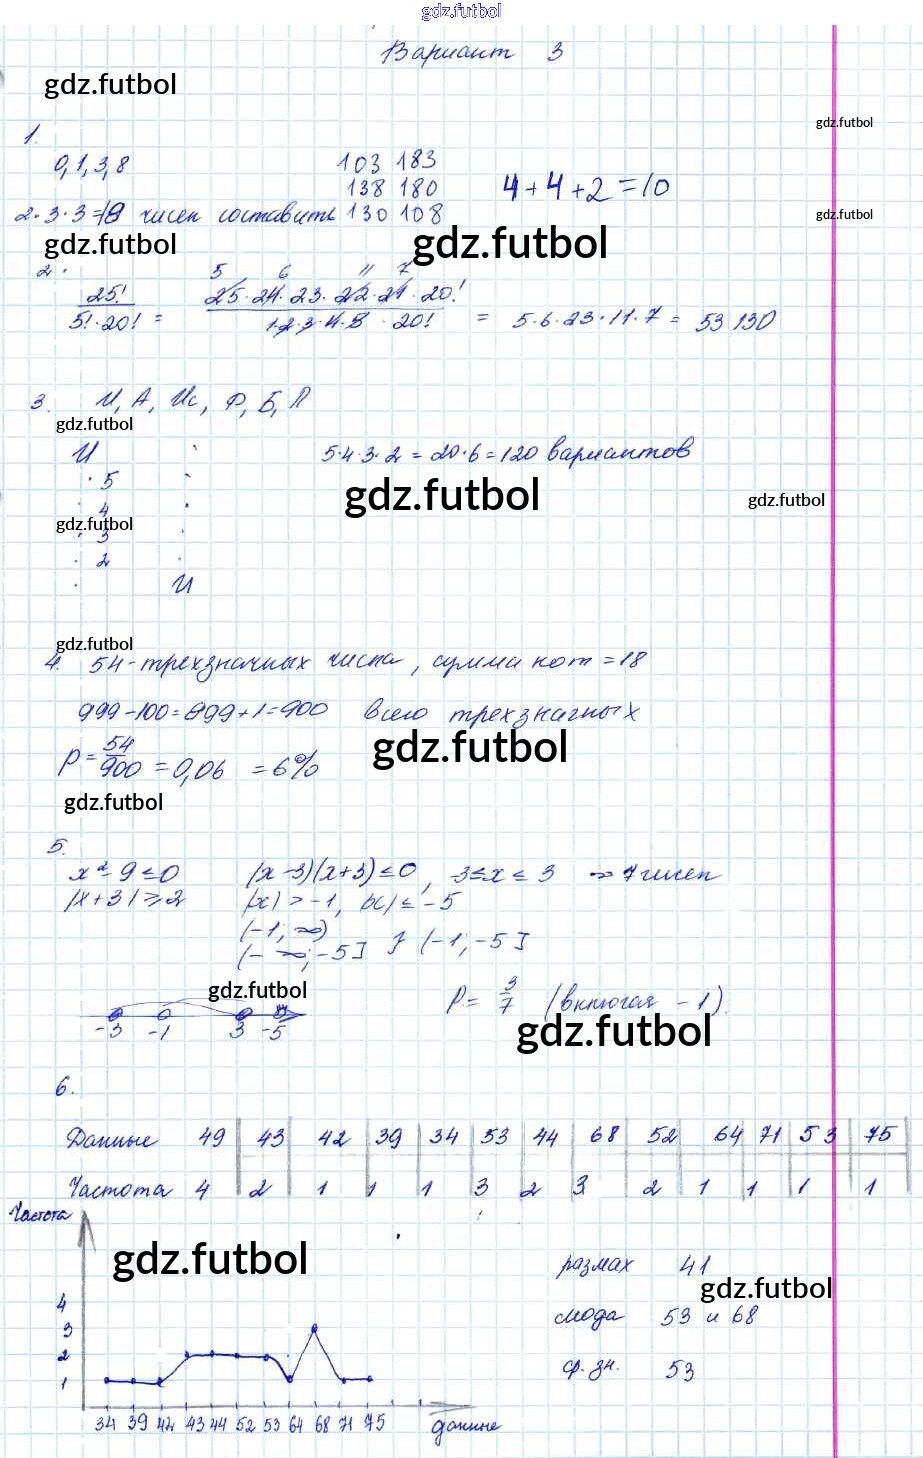 gdz.futbol
Вариант 3
gdz.futbol
gdz.futbol
1.
0, 1, 3, 8 103 183
138 180 4 + 4 + 2 = 10
2·3·3=18 чисел составить 130 108
gdz.futbol
gdz.futbol gdz.futbol
2. 5 6 11 7
25! 25·24·23·22·21·20!
5!·20! = 1·2·3·4·5 · 20! = 5·6·23·11·7 = 53 130
3. И, А, Ис, Ф, Б, Л
gdz.futbol
И 5·4·3·2 = 20·6 = 120 вариантов
5
gdz.futbol gdz.futbol
4
gdz.futbol
3
2
И
gdz.futbol
4. 54 - трехзначных числа, сумма кот = 18
999 - 100 = 899 + 1 = 900 всего трехзначных
gdz.futbol
P = 54/900 = 0,06 = 6%
gdz.futbol
5.
x² - 9 ≤ 0 (x-3)(x+3) ≤ 0, 3 ≤ x ≤ 3 → 7 чисел
|x + 3| ≥ 2 |x| > -1, |x| ≤ -5
(-1; ∞)
(- ∞; -5] } (-1; -5]
gdz.futbol
P = 3/7 (включая -1).
-3 -1 3 -5
gdz.futbol
6.
Данные 49 43 42 39 34 53 44 68 52 64 71 53 75
Частота 4 2 1 1 1 3 2 3 2 1 1 1 1
Частота
gdz.futbol
размах 41
gdz.futbol
4
мода 53 и 68
3
2
ср. зн. 53
1
34 39 42 43 44 52 53 64 68 71 75 данные